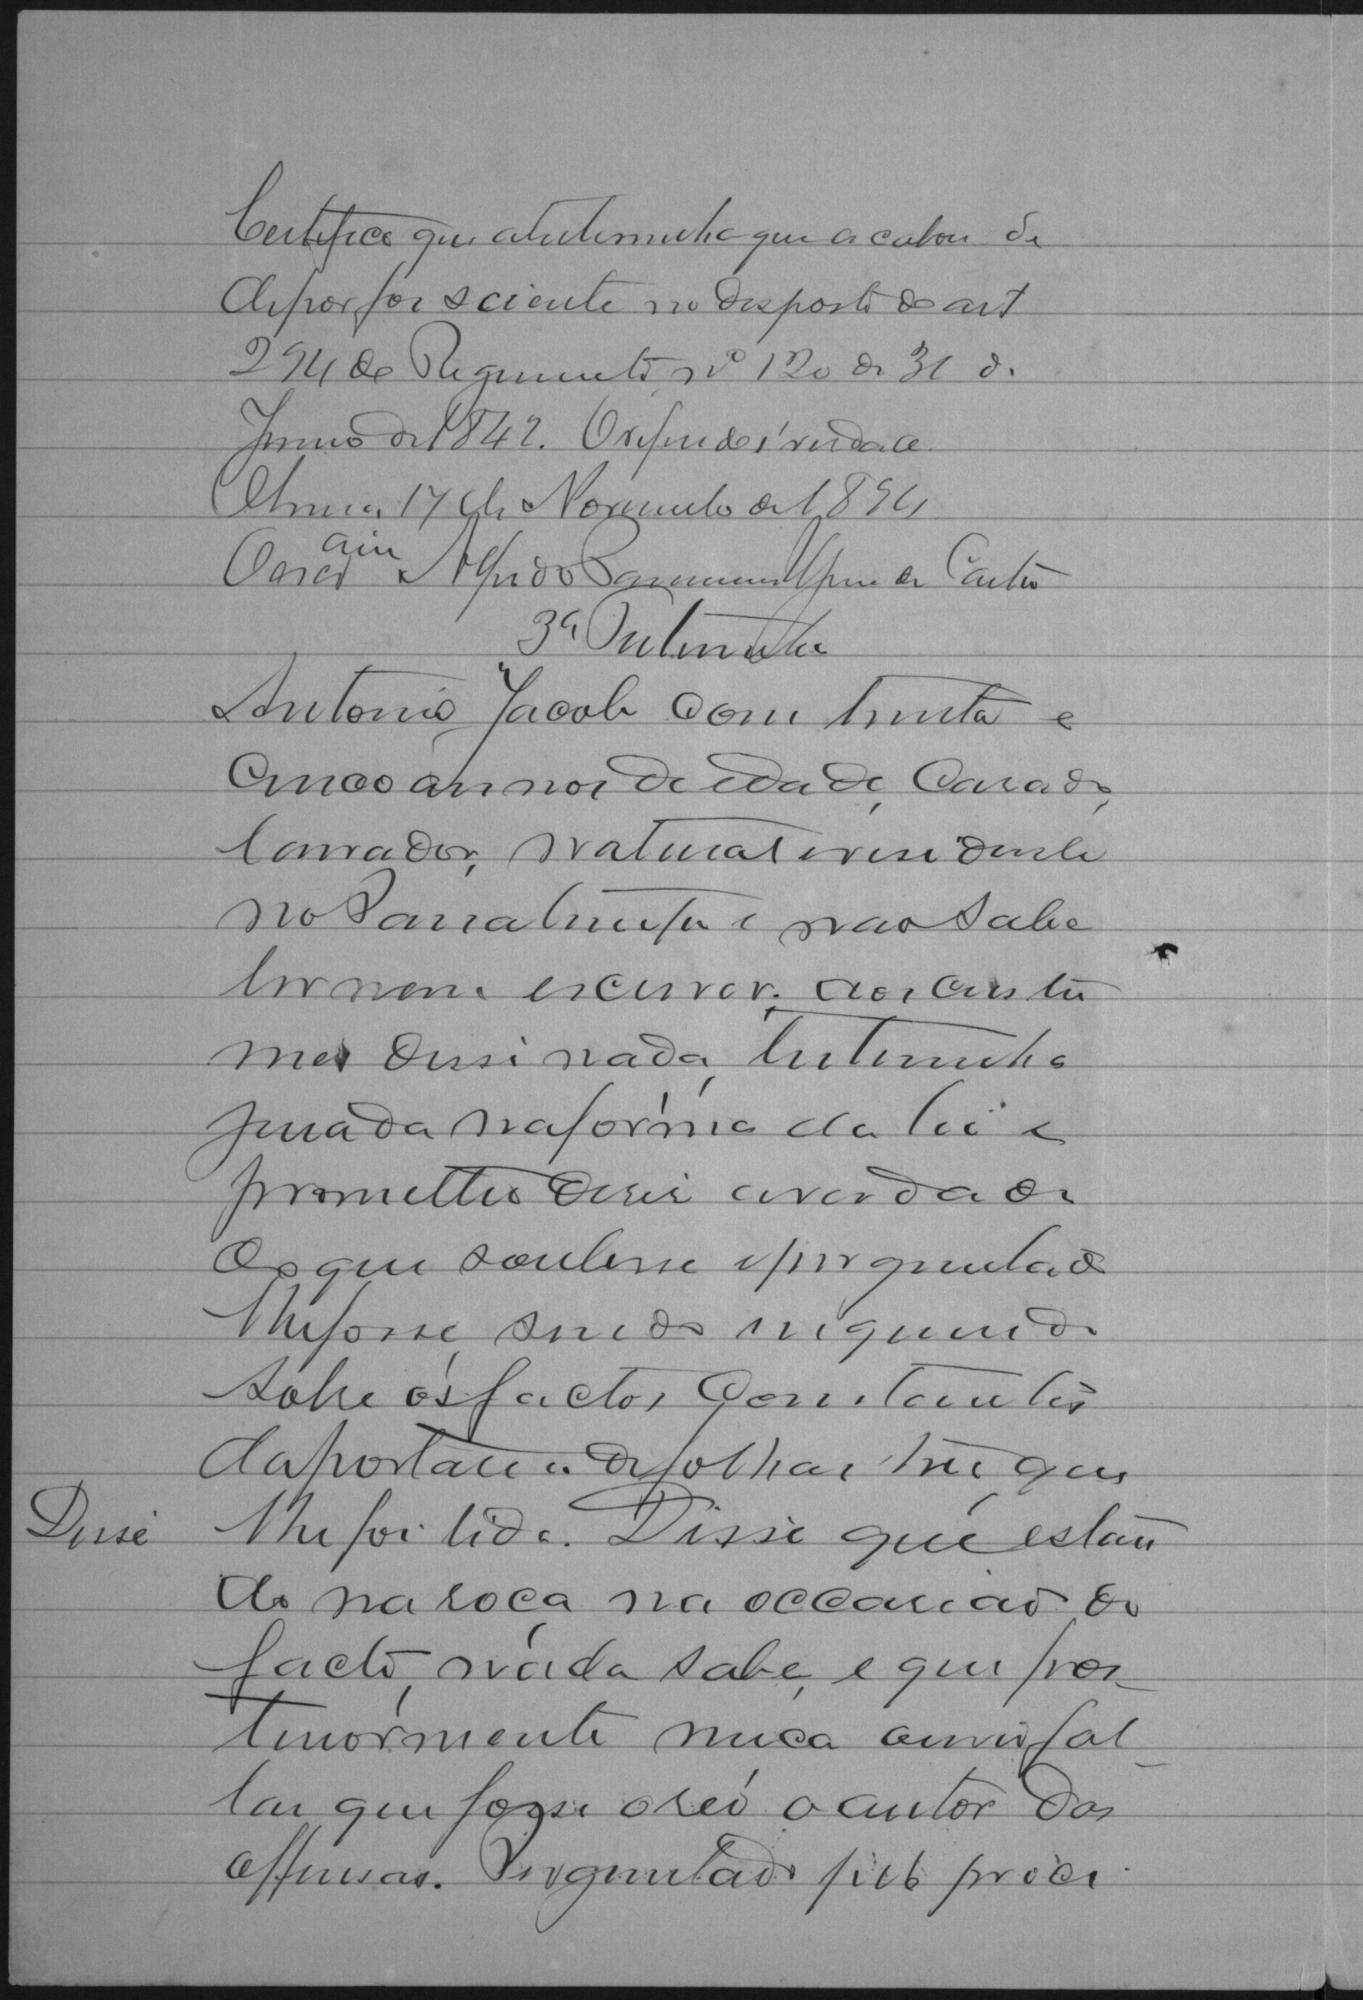 Certifico que a testemunha que acabou de
depor foi sciente no disposto do art
294 do Regumento nº 120 de 31 de
Janeiro de 1842. O referido é verdade
17 de Novembro de 1894
Alfredo de Castro
3ª Testemunha
Antonio Jacob com trinta e
cinco annos de edade, casado,
lavrador, natural e residente
no e não sabe
ler nem escrever, aos custu
mes disse nada, testemunha
jurada na fórma da lei e
prometteu diser a verdade
do que soubesse e perguntado
lhe fosse, sendo inquerido
sobre os factos constantes
da portaria de folhas tres que
Disse lhe foi lida. Disse que estan
do na roça na occasião do
facto, náda sabe, e que pos-
teriórmente nuca ouvio fal-
lar que fosse o réo o autor das
offensas. Perguntado pelo proce